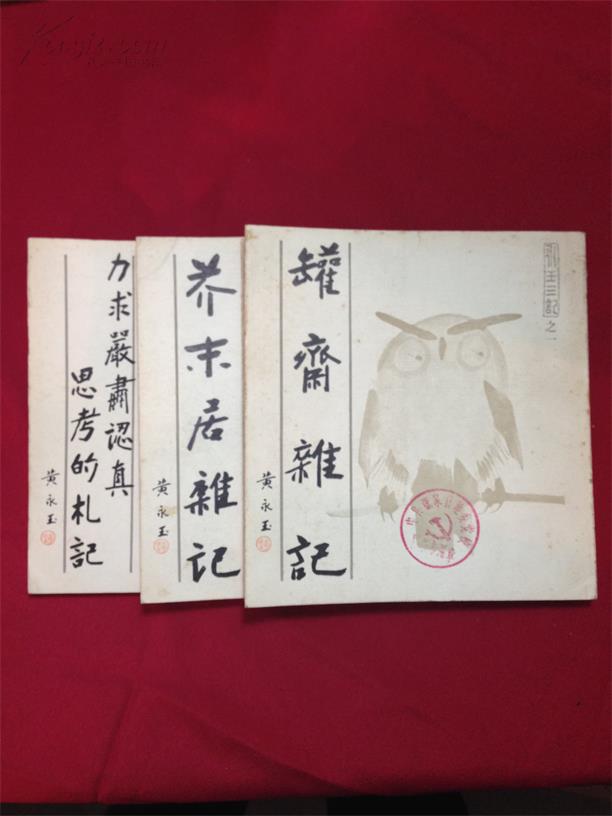 力求嚴肅認真
思考的札記
黄永玉
芥末居雜记
黄永玉
罐齋雜記
黄永玉
永玉三記
之一